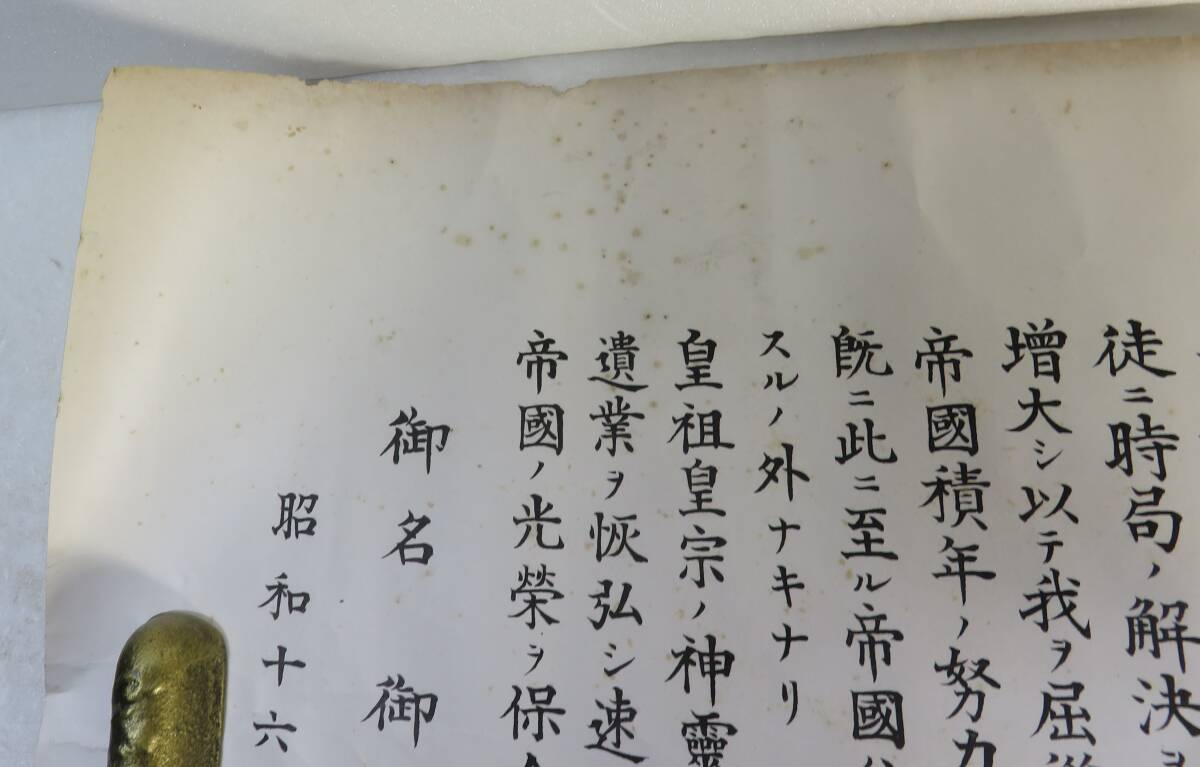 徒ニ時局ノ解決ヲ
增大シ以テ我ヲ屈
帝國積年ノ努力
既ニ此ニ至ル帝國
スルノ外ナキナリ
皇祖皇宗ノ神靈
遺業ヲ恢弘シ速
帝國ノ光榮ヲ保
御名御
昭和十六